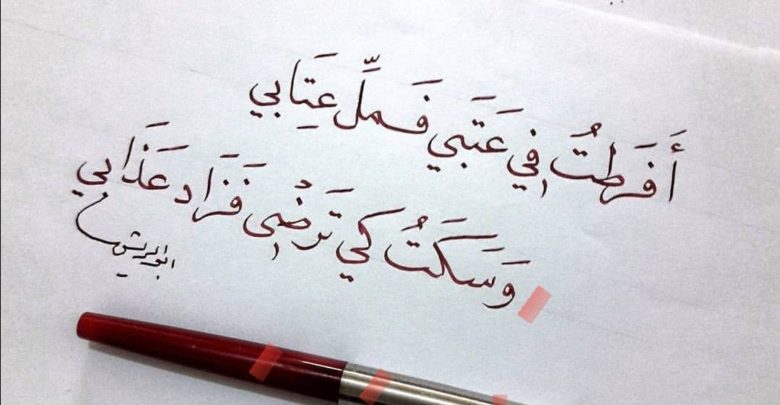 أَفرَطتُ في عَتَبي فَملِّ عَتِابي
وَسَكَتُ كي تَرضْى فَزَاد عَذَابي
ابو الريش